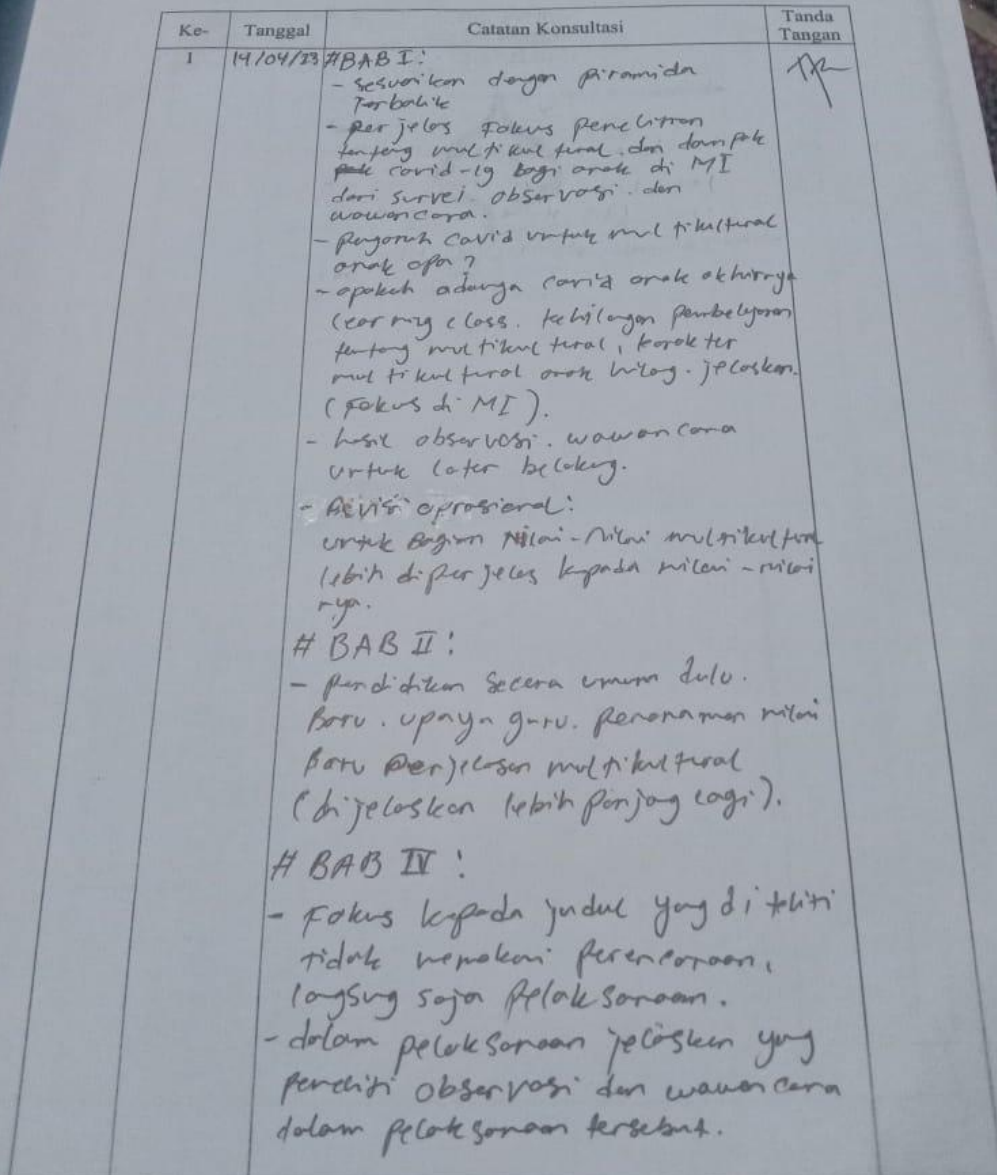 Ke- Tanggal Catatan Konsultasi Tanda Tangan
1 14/04/23 #BAB I :
- sesuaikan dengan piramida
Terbalik
- perjelas Fokus penelitian
tentang multikultural. dan dampak
covid-19 bagi anak di MI
dari survei. observasi. dan
wawancara.
- pengaruh covid untuk multikultural
anak apa ?
- apakah adanya covid anak akhirnya
learning class. kehilangan pembelajaran
tentang multikultural, karakter
multikultural anak hilag. jelaskan.
(Fokus di MI).
- hasil observasi. wawancara
untuk later belakng.
- Revisi oprasional:
untuk Bagian Nilai-Nilai multikultural
lebih diperjelas kepada nilai-nilai
nya.
# BAB II :
- pendidikan secara umum dulu.
Baru. upaya guru. penanaman nilai
Baru penjelasan multikultural
(dijelaskan lebih panjag lagi).
# BAB IV :
- Fokus kepada judul yang diteliti
tidak memakai perencanaan,
lagsug saja pelaksanaan.
- dalam pelaksanaan jelaskan yang
peneliti observasi dan wawancara
dalam pelaksanaan tersebut.